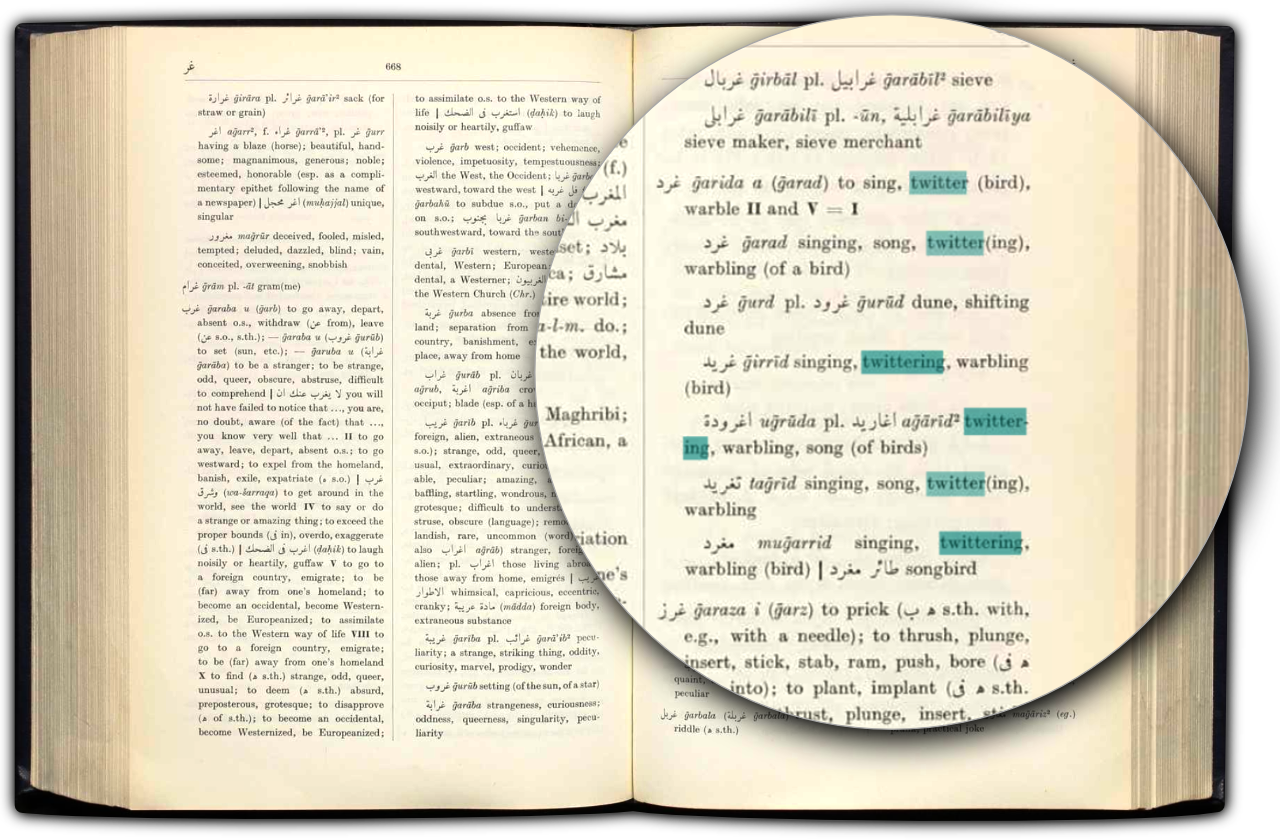 غر
668
غرارة ḡirāra pl. غرائر ḡarā'ir² sack (for
straw or grain)
اغر aḡarr², f. غراء ḡarrā'², pl. غر ḡurr
having a blaze (horse); beautiful, hand-
some; magnanimous, generous; noble;
esteemed, honorable (esp. as a compli-
mentary epithet following the name of
a newspaper) | اغر محجل (muḥajjal) unique,
singular
مغرور maḡrūr deceived, fooled, misled,
tempted; deluded, dazzled, blind; vain,
conceited, overweening, snobbish
غرام ḡrām pl. -āt gram(me)
غرب ḡaraba u (ḡarb) to go away, depart,
absent o.s., withdraw (عن from), leave
(عن s.o., s.th.); — ḡaraba u (غروب ḡurūb)
to set (sun, etc.); — ḡaruba u (غرابة
ḡarāba) to be a stranger; to be strange,
odd, queer, obscure, abstruse, difficult
to comprehend | لا يغرب عنك ان you will
not have failed to notice that ..., you are,
no doubt, aware (of the fact) that ...,
you know very well that ... II to go
away, leave, depart, absent o.s.; to go
westward; to expel from the homeland,
banish, exile, expatriate (ه s.o.) | غرب
وشرق (wa-šarraqa) to get around in the
world, see the world IV to say or do
a strange or amazing thing; to exceed the
proper bounds (فى in), overdo, exaggerate
(فى s.th.) | اغرب فى الضحك (ḍaḥik) to laugh
noisily or heartily, guffaw V to go to
a foreign country, emigrate; to be
(far) away from one's homeland; to
become an occidental, become Western-
ized, be Europeanized; to assimilate
o.s. to the Western way of life VIII to
go to a foreign country, emigrate;
to be (far) away from one's homeland
X to find (ه s.th.) strange, odd, queer,
unusual; to deem (ه s.th.) absurd,
preposterous, grotesque; to disapprove
(ه of s.th.); to become an occidental,
become Westernized, be Europeanized;
to assimilate o.s. to the Western way of
life | استغرب فى الضحك (ḍaḥik) to laugh
noisily or heartily, guffaw
غرب ḡarb west; occident; vehemence,
violence, impetuosity, tempestuousness;
الغرب the West, the Occident; غربا ḡarban
westward, toward the west | فل غربه
ḡarbahū to subdue s.o., put a
on s.o.; غربا بجنوب ḡarban bi-
southwestward, toward the
غربى ḡarbī western,
dental, Western; European
dental, a Westerner; الغربيون
the Western Church (Chr.)
غربة ḡurba absence
land; separation from
country, banishment,
place, away from home
غراب ḡurāb pl. غربان
aḡrub, اغربة aḡriba
occiput; blade (esp. of a
غريب ḡarīb pl. غرباء
foreign, alien, extraneous
s.o.); strange, odd, queer,
usual, extraordinary,
able, peculiar; amazing,
baffling, startling, wondrous,
grotesque; difficult to
struse, obscure (language);
landish, rare, uncommon (word)
also اغراب aḡrāb) stranger,
alien; pl. اغراب those living
those away from home, emigrés |
الاطوار whimsical, capricious, eccentric,
cranky; مادة غريبة (mādda) foreign body,
extraneous substance
غريبة ḡarība pl. غرائب ḡarā'ib² pecu-
liarity; a strange, striking thing, oddity,
curiosity, marvel, prodigy, wonder
غروب ḡurūb setting (of the sun, of a star)
غرابة ḡarāba strangeness, curiousness;
oddness, queerness, singularity, pecu-
liarity
(f.)
المغرب
مغرب
set; بلاد
ca; مشارق
ire world;
a-l-m. do.;
the world,
Maghribi;
African, a
riation
ne's
غربال ḡirbāl pl. غرابيل ḡarābīl² sieve
غرابلى ḡarābilī pl. -ūn, غرابلية ḡarābilīya
sieve maker, sieve merchant
غرد ḡarida a (ḡarad) to sing, twitter (bird),
warble II and V = I
غرد ḡarad singing, song, twitter(ing),
warbling (of a bird)
غرد ḡurd pl. غرود ḡurūd dune, shifting
dune
غريد ḡirrīd singing, twittering, warbling
(bird)
اغرودة uḡrūda pl. اغاريد aḡārīd² twitter-
ing, warbling, song (of birds)
تغريد taḡrīd singing, song, twitter(ing),
warbling
مغرد muḡarrid singing, twittering,
warbling (bird) | طائر مغرد songbird
غرز ḡaraza i (ḡarz) to prick (ب ه s.th. with,
e.g., with a needle); to thrust, plunge,
insert, stick, stab, ram, push, bore (فى ه
into); to plant, implant (فى ه s.th.
thrust, plunge, insert,
quaint,
peculiar
غربل ḡarbala (غربلة ḡarbala)
riddle (ه s.th.)
maḡāriz² (eg.)
practical joke